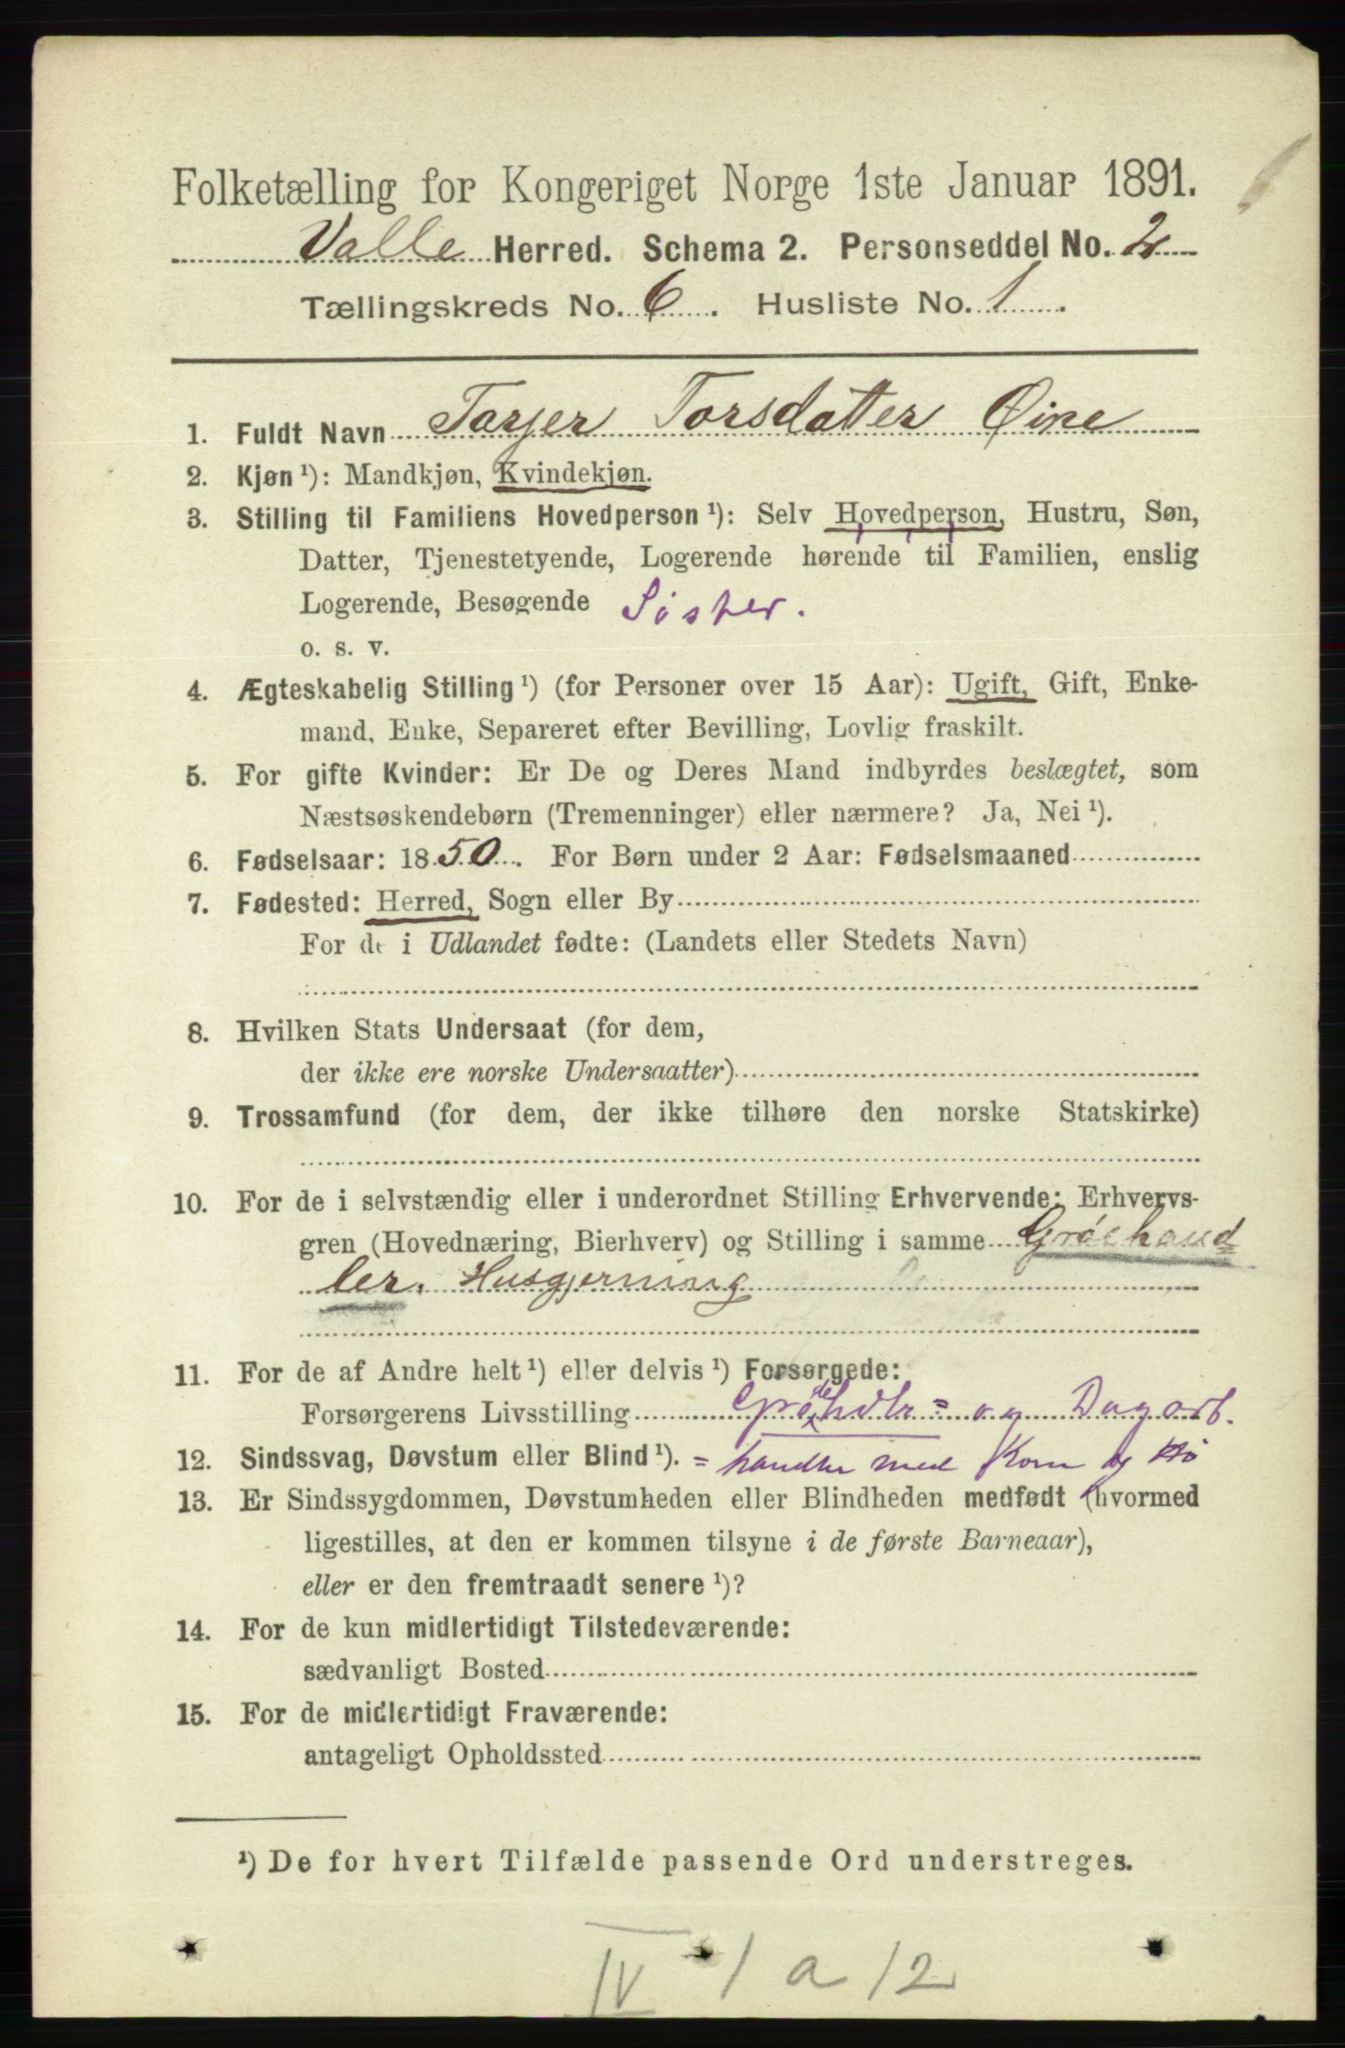 Folketælling for Kongeriget Norge 1ste Januar 1891.
Valle Herred. Schema 2. Personseddel No. 2
Tællingskreds No. 6. Husliste No. 1.
1. Fuldt Navn Tarjer Torsdatter Øine
2. Kjøn ¹): Mandkjøn, Kvindekjøn.
3. Stilling til Familiens Hovedperson ¹): Selv Hovedperson, Hustru, Søn,
Datter, Tjenestetyende, Logerende hørende til Familien, enslig
Logerende, Besøgende Sister.
o. s. v.
4. Ægteskabelig Stilling ¹) (for Personer over 15 Aar): Ugift, Gift, Enke-
mand, Enke, Separeret efter Bevilling, Lovlig fraskilt.
5. For gifte Kvinder: Er De og Deres Mand indbyrdes beslægtet, som
Næstsøskendebørn (Tremenninger) eller nærmere? Ja, Nei ¹).
6. Fødselsaar: 1850. For Børn under 2 Aar: Fødselsmaaned
7. Fødested: Herred, Sogn eller By
For de i Udlandet fødte: (Landets eller Stedets Navn)
8. Hvilken Stats Undersaat (for dem,
der ikke ere norske Undersaatter)
9. Trossamfund (for dem, der ikke tilhøre den norske Statskirke)
10. For de i selvstændig eller i underordnet Stilling Erhvervende: Erhvervs-
gren (Hovednæring, Bierhverv) og Stilling i samme Gröehand=
ler. Husgjerning
11. For de af Andre helt ¹) eller delvis ¹) Forsørgede:
Forsørgerens Livsstilling Grödehdlr = og Dagarb.
12. Sindssvag, Døvstum eller Blind ¹). = handler med Korn og Hø
13. Er Sindssygdommen, Døvstumheden eller Blindheden medfødt (hvormed
ligestilles, at den er kommen tilsyne i de første Barneaar),
eller er den fremtraadt senere ¹)?
14. For de kun midlertidigt Tilstedeværende:
sædvanligt Bosted
15. For de midlertidigt Fraværende:
antageligt Opholdssted
¹) De for hvert Tilfælde passende Ord understreges.
IV 1 a 12